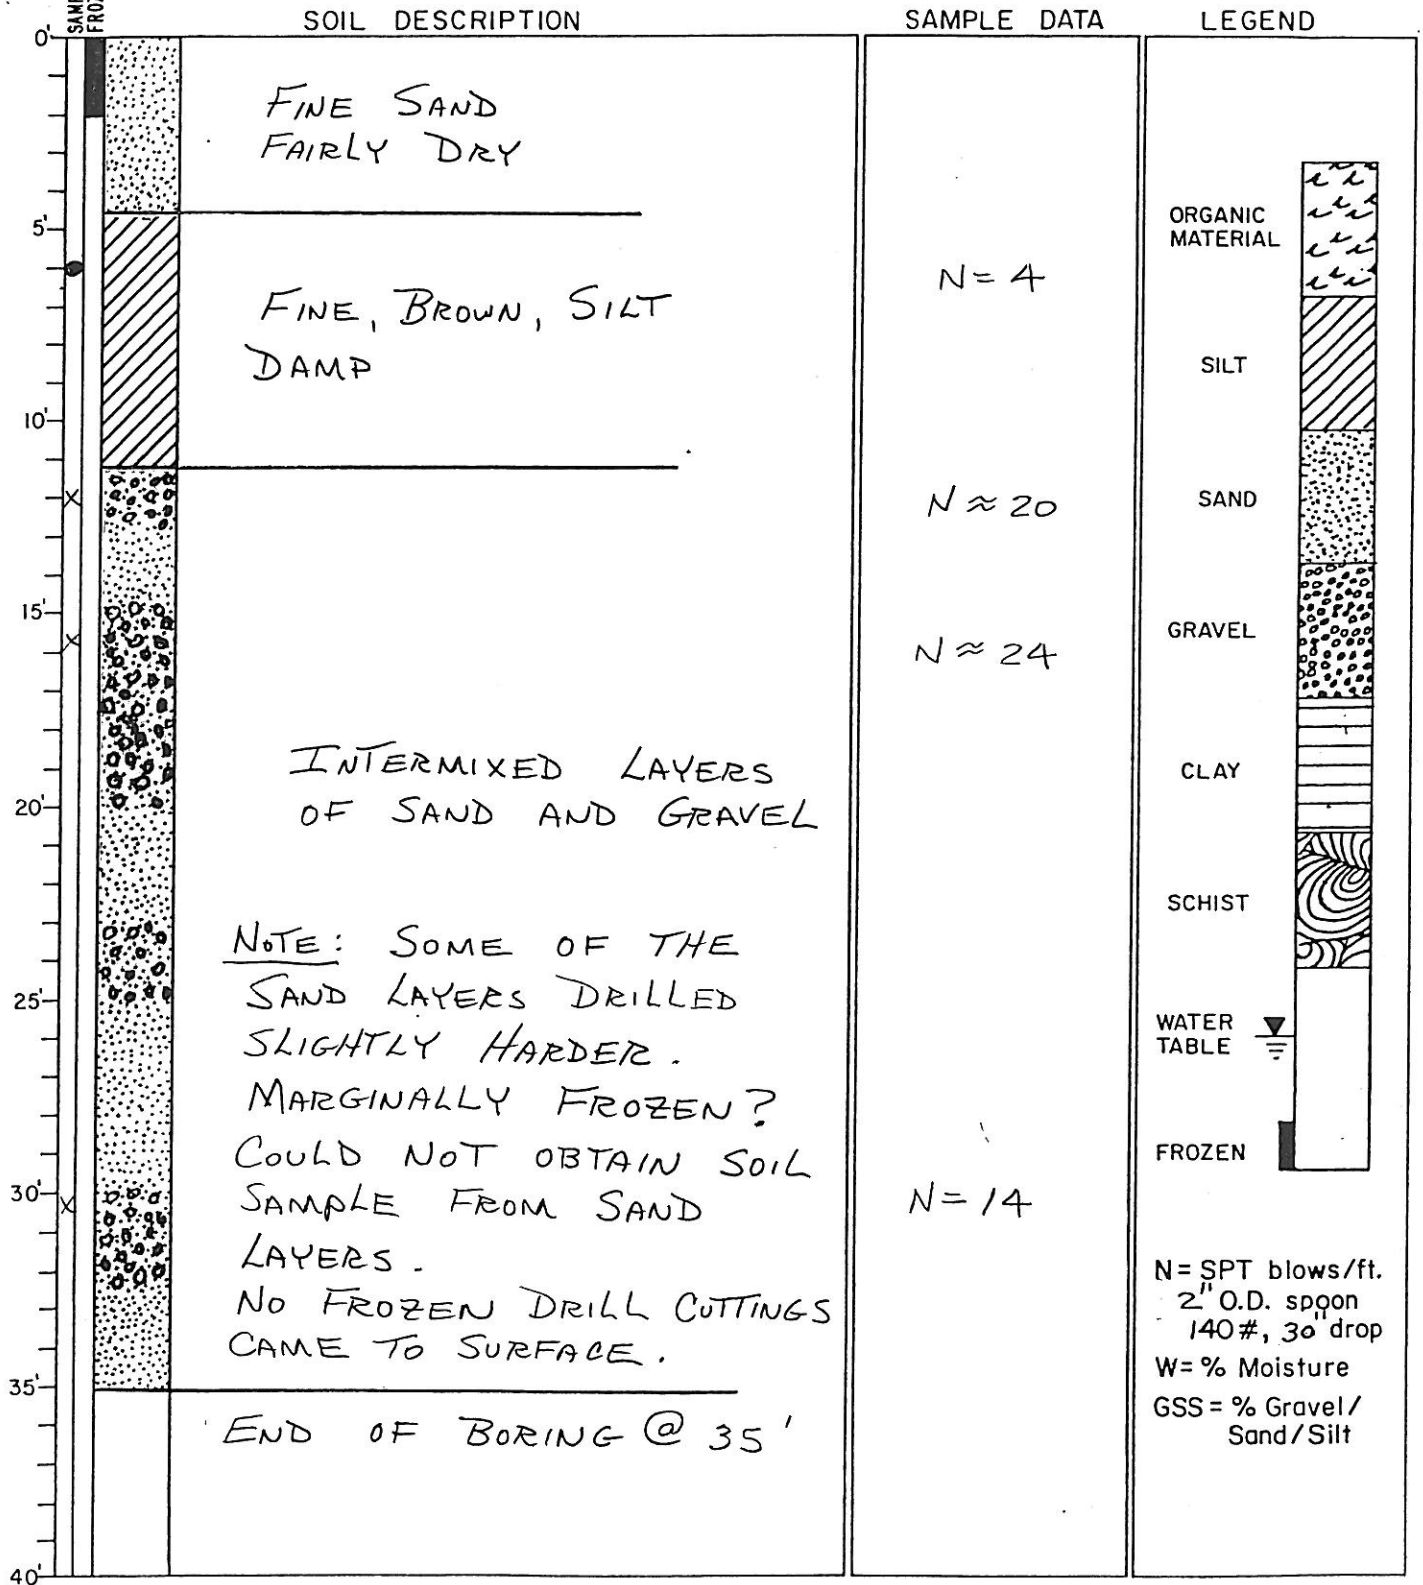 SOIL DESCRIPTION
SAMPLE DATA
LEGEND
0'
5'
10'
15'
20'
25'
30'
35'
40'
FINE SAND
FAIRLY DRY
FINE, BROWN, SILT
DAMP
INTERMIXED LAYERS
OF SAND AND GRAVEL
NOTE: SOME OF THE
SAND LAYERS DRILLED
SLIGHTLY HARDER.
MARGINALLY FROZEN?
COULD NOT OBTAIN SOIL
SAMPLE FROM SAND
LAYERS.
NO FROZEN DRILL CUTTINGS
CAME TO SURFACE.
END OF BORING @ 35'
N= 4
N ≈ 20
N ≈ 24
N= 14
ORGANIC
MATERIAL
SILT
SAND
GRAVEL
CLAY
SCHIST
WATER
TABLE
FROZEN
N= SPT blows/ft.
2" O.D. spoon
140#, 30" drop
W= % Moisture
GSS = % Gravel/
Sand/Silt